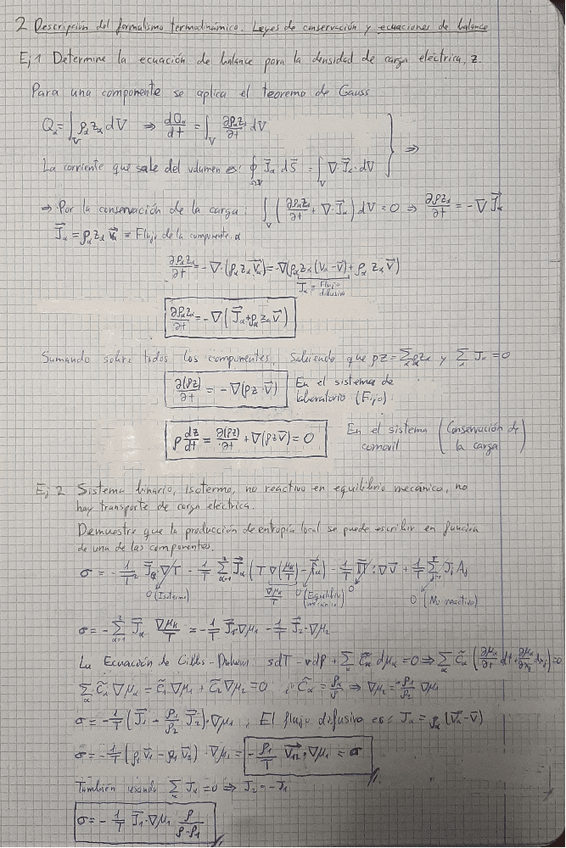 2 Descripción del formalismo termodinámico. Leyes de conservación y ecuaciones de balance
Ej 1 Determine la ecuación de balance para la densidad de carga eléctrica, z.
Para una componente se aplica el teorema de Gauss
Qα = ∫_V ρα zα dV ⇒ dQα/dt = ∫_V ∂ρα zα/∂t dV
La corriente que sale del volumen es: ∮ J⃗α dS⃗ = ∫_V ∇·J⃗α·dV } ⇒
⇒ Por la conservación de la carga: ∫_V (∂ρα zα/∂t + ∇·J⃗α) dV = 0 ⇒ ∂ρα zα/∂t = -∇ J⃗α
J⃗α = ρα zα v⃗α = Flujo de la componente α
∂ρα zα/∂t = -∇·(ρα zα v⃗α) = -∇(ρα zα (vα - v⃗) + ρα zα v⃗)
Jα = Flujo difusivo
∂ρα zα/∂t = -∇(J⃗α + ρα zα v⃗)
Sumando sobre todos los componentes, sabiendo que ρz = Σ ρα zα y Σ Jα = 0
∂(ρz)/∂t = -∇(ρz·v⃗) En el sistema de
laboratorio (Fijo)
ρ dz/dt = ∂(ρz)/∂t + ∇(ρz v⃗) = 0 En el sistema comovil (Conservación de la carga)
Ej 2 Sistema binario, isotermo, no reactivo en equilibrio mecánico, no
hay transporte de carga eléctrica.
Demuestre que la producción de entropía local se puede escribir en función
de una de las componentes.
0 (Isotermo) ∇μα/T 0 (Equilibrio mecánico) 0 0 (No reactivo)
σ = -Σ J⃗α ∇μα/T = -1/T J⃗1·∇μ1 - 1/T J⃗2·∇μ2
La Ecuación de Gibbs-Duhem sdT - vdP + Σ c̃α dμα = 0
Σ c̃α ∇μα = c̃1 ∇μ1 + c̃2 ∇μ2 = 0 ; c̃α = ρα/ρ ⇒ ∇μ2 = -ρ1/ρ2 ∇μ1
σ = -1/T (J⃗1 - ρ1/ρ2 J⃗2)·∇μ1 ; El flujo difusivo es: Jα = ρα (v⃗α - v⃗)
σ = -1/T (ρ1 v⃗1 - ρ1 v⃗2)·∇μ1 = -ρ1/T v⃗12·∇μ1 = σ
También usando Σ Jα = 0 ⇒ J2 = -J1
σ = -1/T J⃗1·∇μ1 ρ/(ρ-ρ1)